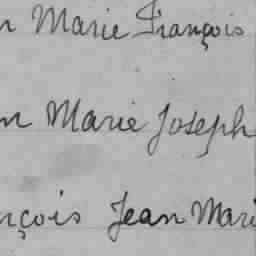 n Marie François
n Marie Joseph
nçois Jean Mari